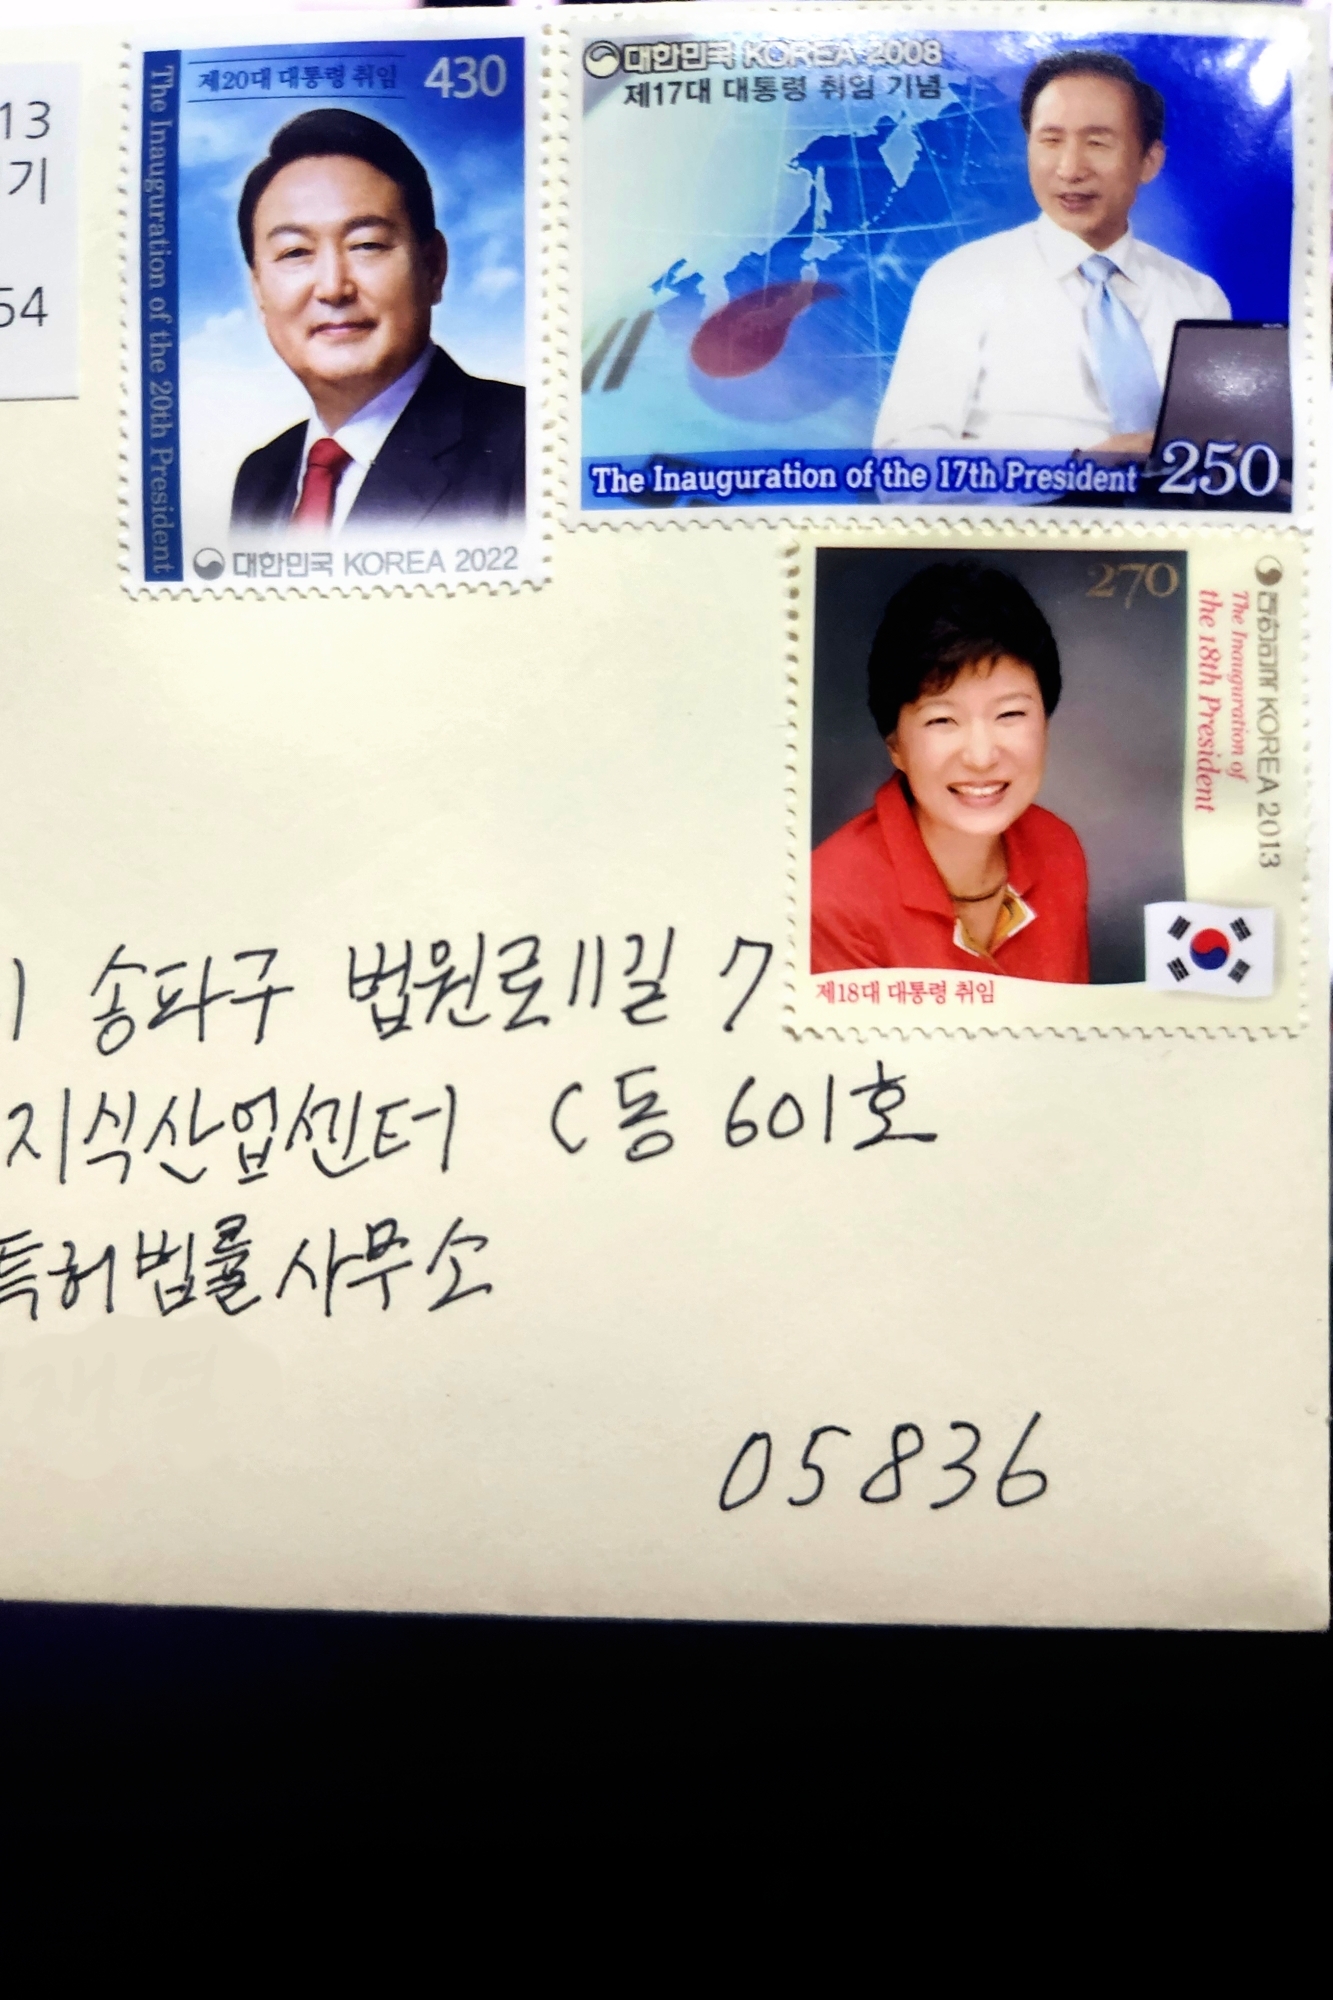 13
기
54
The Inauguration of the 20th President
제20대 대통령 취임 430
대한민국 KOREA 2022
대한민국 KOREA 2008
제17대 대통령 취임 기념
The Inauguration of the 17th President 250
270
대한민국 KOREA 2013
The Inauguration of
the 18th President
제18대 대통령 취임
송파구 법원로11길 7
지식산업센터 C동 601호
특허법률사무소
05836